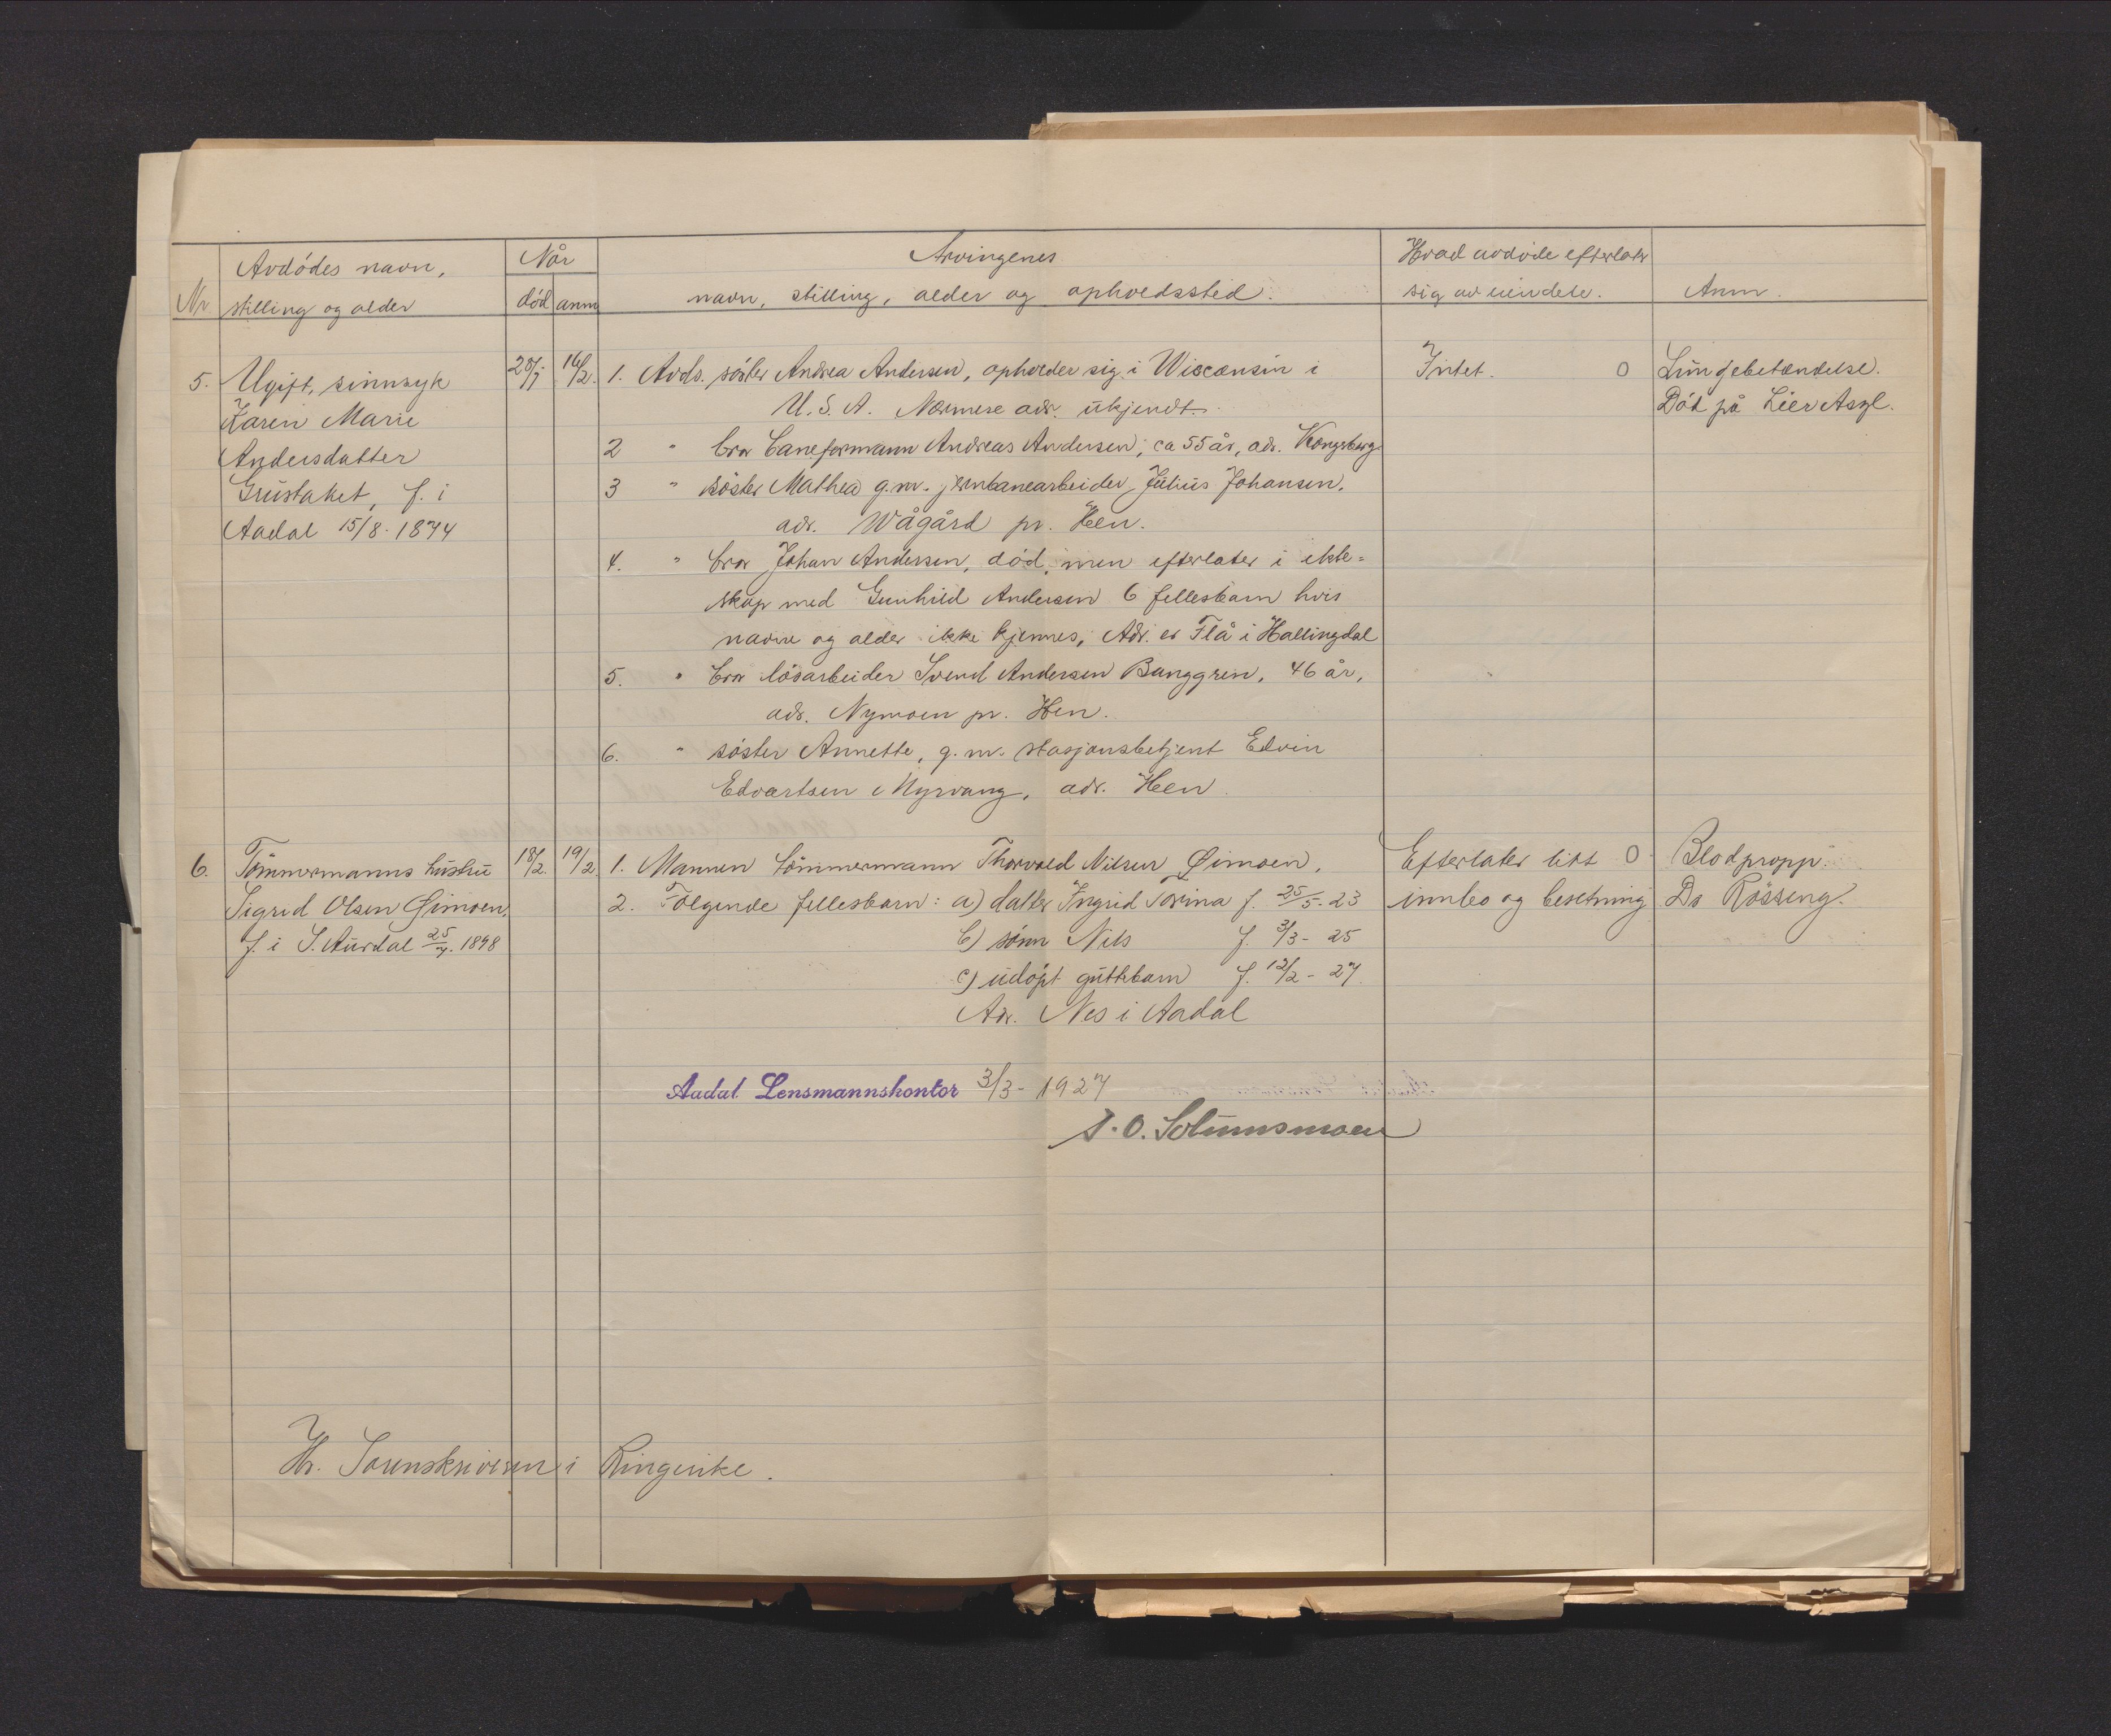 Nr
Avdödes navn,
stilling og alder
Når
död anm
Arvingenes
navn, stilling, alder og opholdssted.
Hvad avdöde efterlater
sig av eiendele.
Anm.
5. Ugift, sinnsyk
Karen Marie
Andersdatter
Grustaket, f. i
Aadal 15/8-1874
28/1 16/2.
1. Avds. söster Andrea Andersen, opholder sig i Wisconsin i
U.S.A. Nærmere adr. ukjendt.
2 " bror Baneformann Andreas Andersen, ca 55 år, adr. Kongsberg
3 " söster Mathea g.m. jernbanearbeider Julius Johansen.
adr. Wågård pr. Hen.
4. " bror Johan Andersen, död, men efterlater i ekte=
skap med Gunhild Andersen 6 fellesbarn hvis
navne og alder ikke kjennes, Adr. er Flå i Hallingdal
5. " bror lösarbeider Svend Andersen Banggren, 46 år,
adr. Nymoen pr. Hen.
6. " söster Annette, g.m. stasjonsbetjent Edvin
Edvartsen Nyvang, adr. Hen.
Intet. 0
Lungebetændelse.
Död på Lier Asyl.
6. Tömmermanns hustru
Sigrid Olsen Øimoen,
f. i S. Aurdal 25/7. 1898
18/2. 19/2.
1. Mannen tömmermann Thorvald Nilsen Øimoen.
2. Følgende fellesbarn: a) datter Ingrid Torina f. 25/5-23
b) sönn Nils f. 3/3-25
c) udöpt guttebarn f. 12/2-27.
Adr. Nes i Aadal
Efterlater litt 0
innbo og besetning
Blodpropp.
Dr Rösseng.
Aadal Lensmannskontor 3/3-1927
S.O. Solumsmoen
Hr. Sorenskriveren i Ringerike.